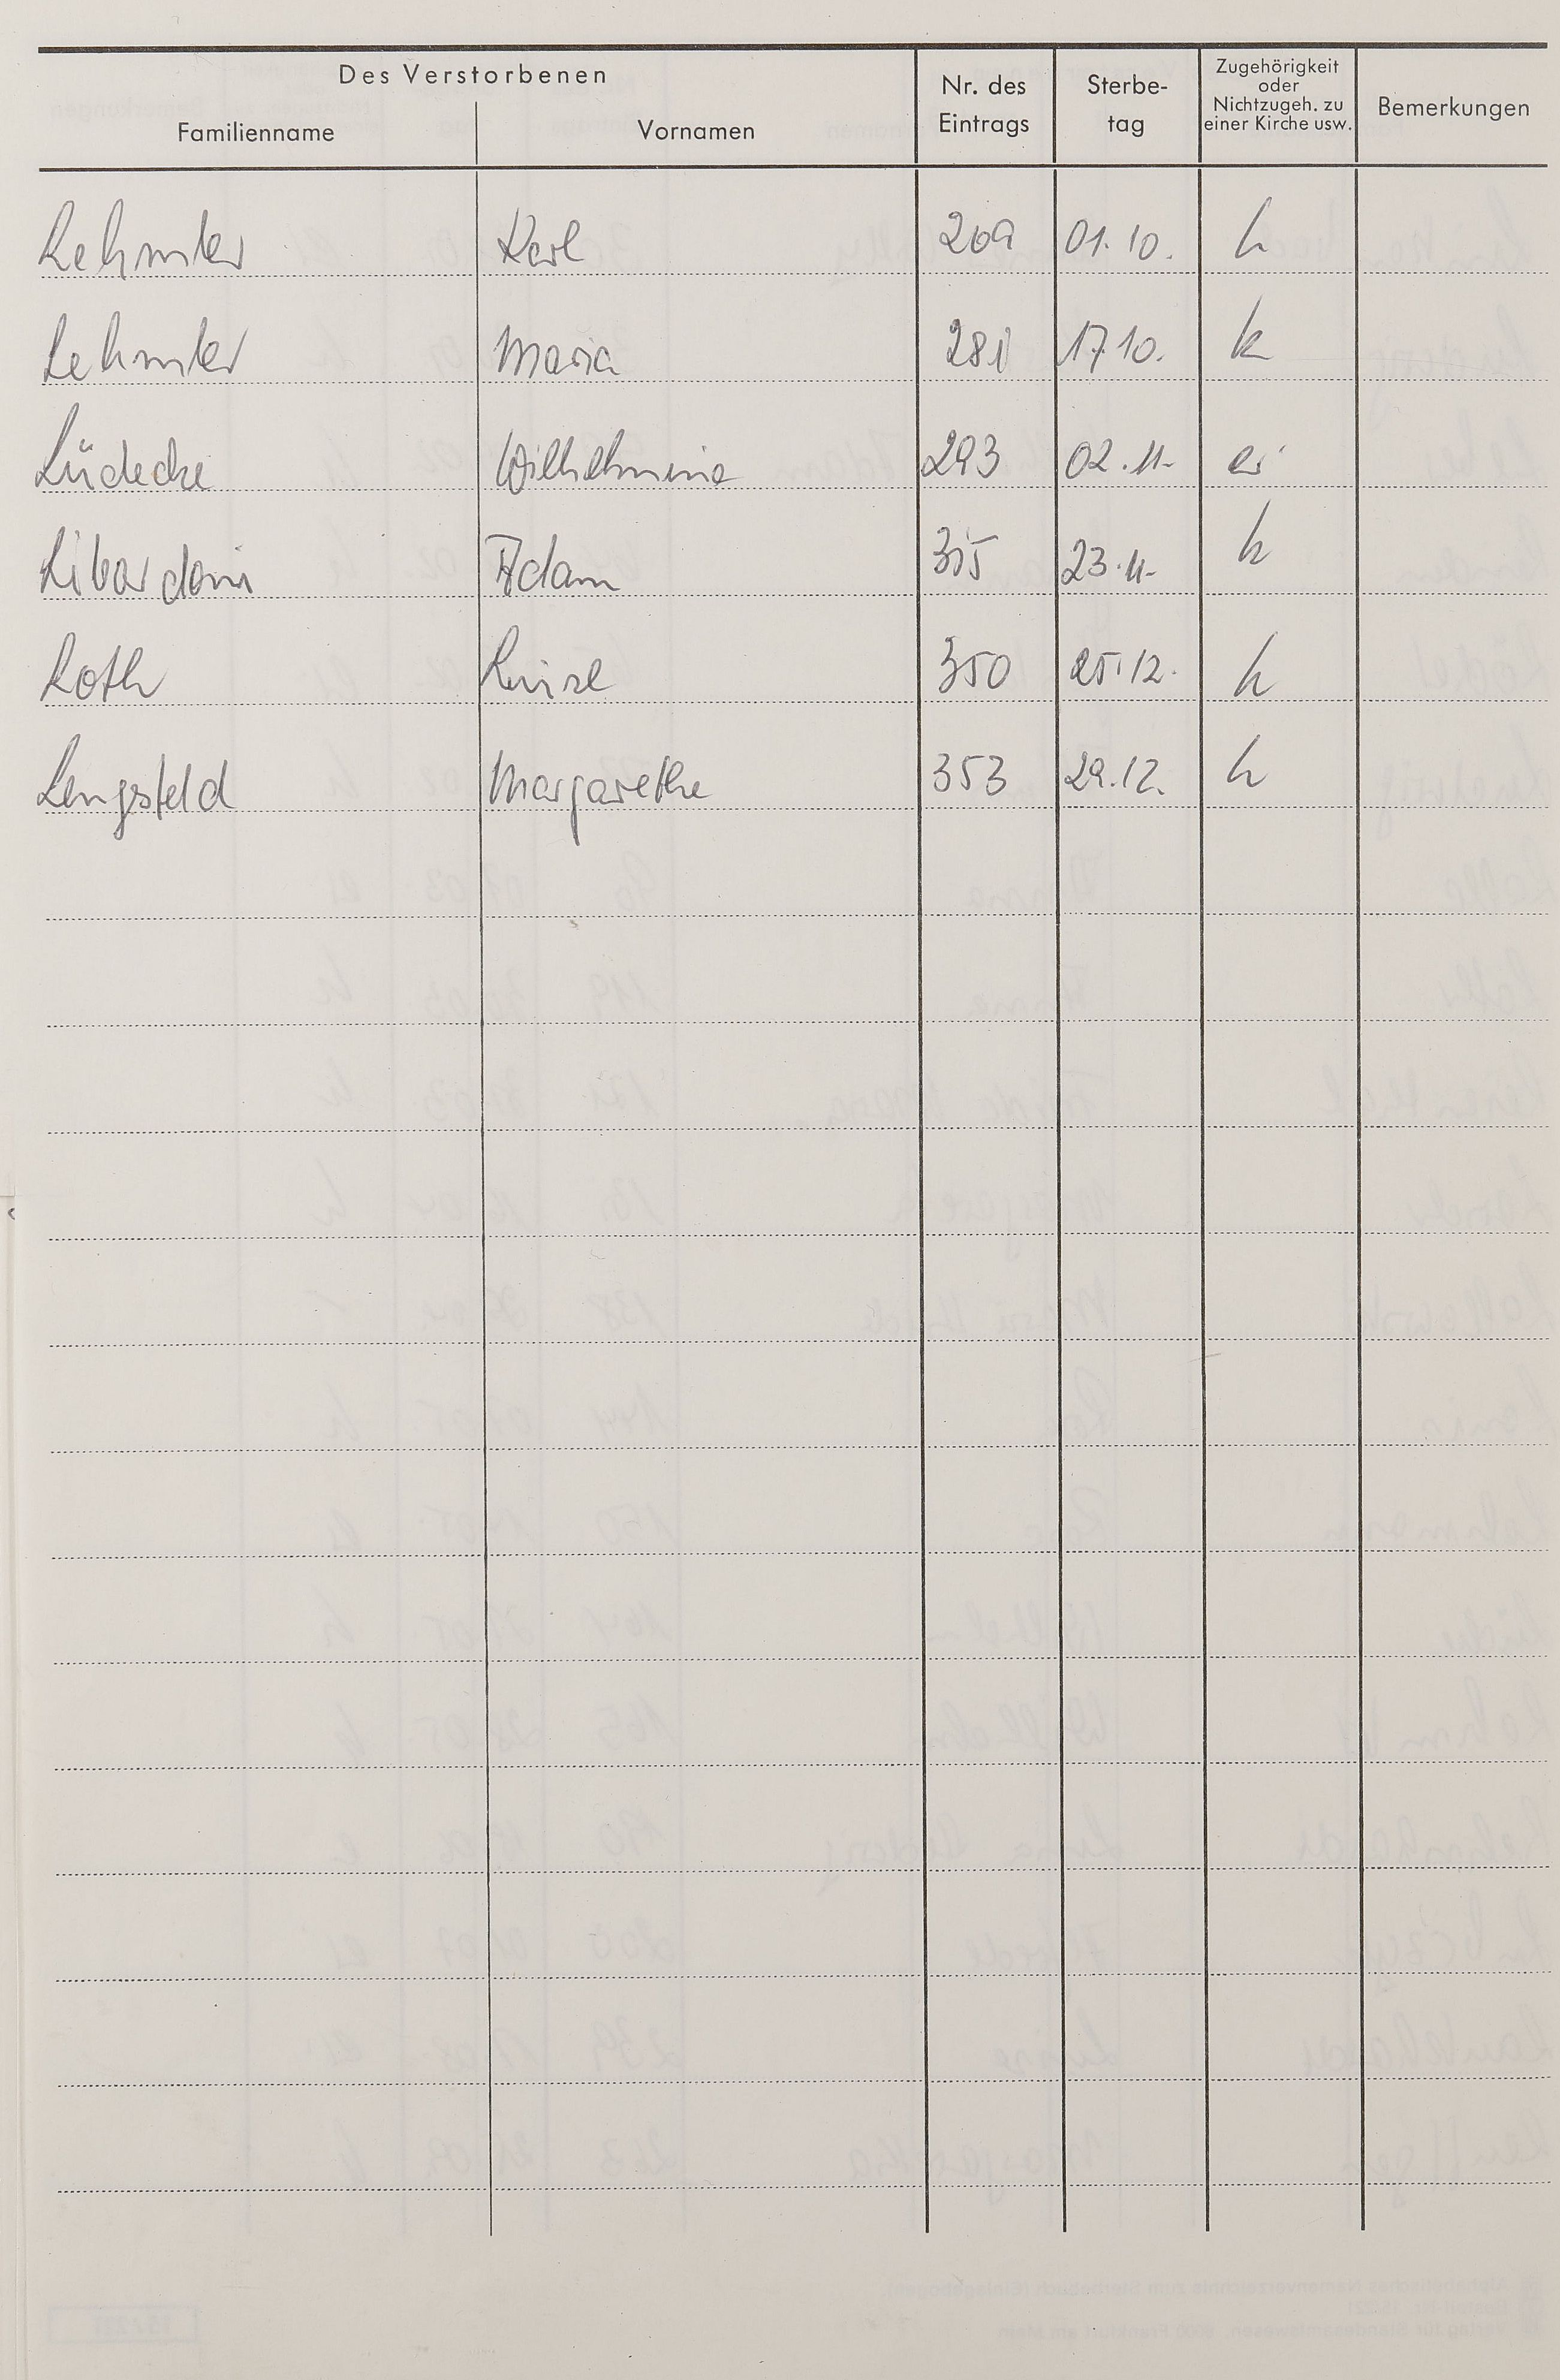 Des Verstorbenen
Familienname Vornamen Nr. des Eintrags Sterbe- tag Zugehörigkeit oder Nichtzugeh. zu einer Kirche usw. Bemerkungen
Lehmler Karl 269 01.10. k
Lehmler Maria 281 17.10. k
Lüdecke Wilhelmine 293 02.11. ev
Libardoni Adam 315 23.11. k
Loth Luise 350 25.12. k
Lengsfeld Margarethe 353 29.12. k